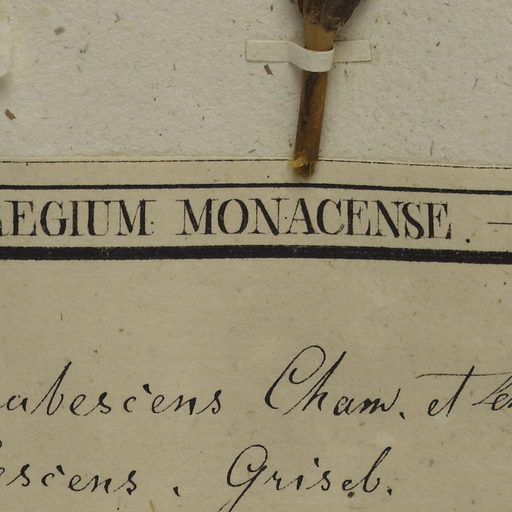 REGIUM MONACENSE.
ubescens Cham. et
escens. Griseb.